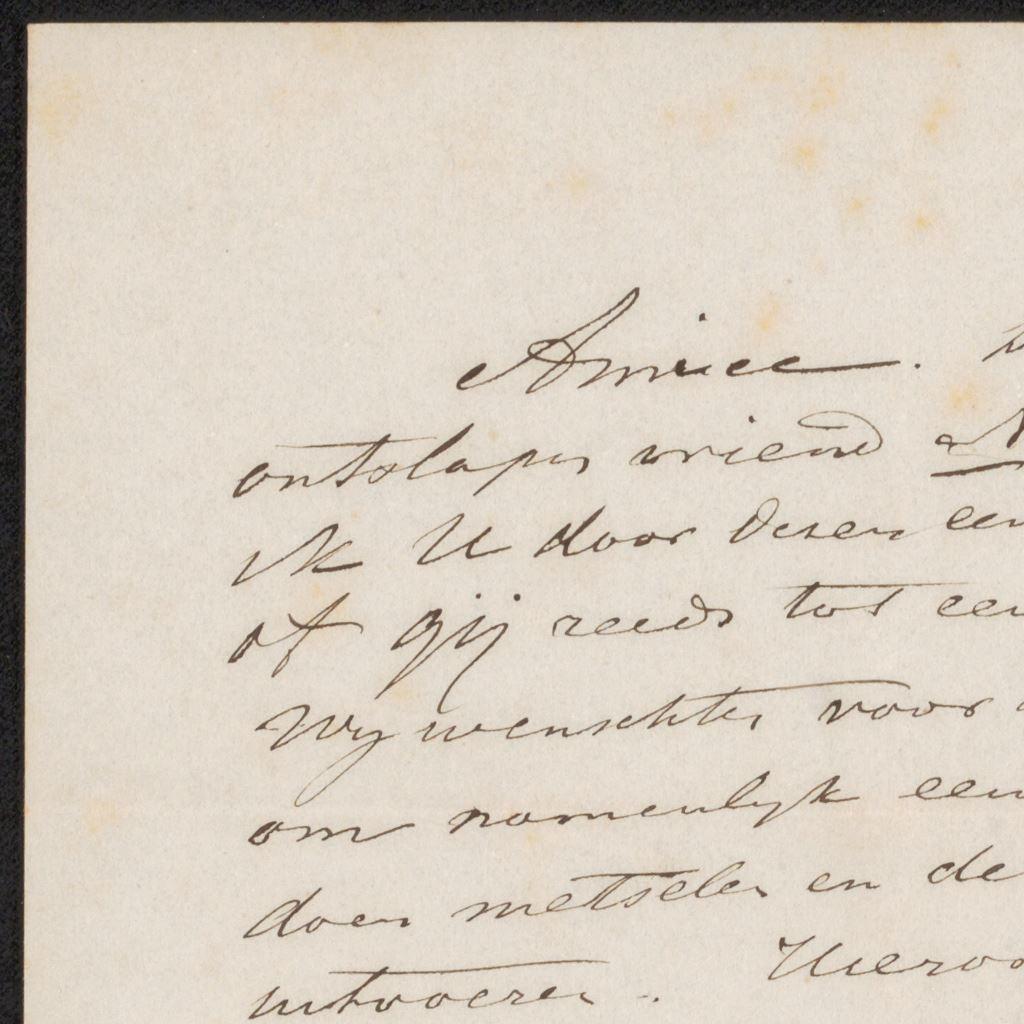 Amice.
ontslapen vriend
ik U door dezen een
of gij reeds tot een
Wy wenschten voor
om namenlyk een
doen metselen en de
uitvoeren.